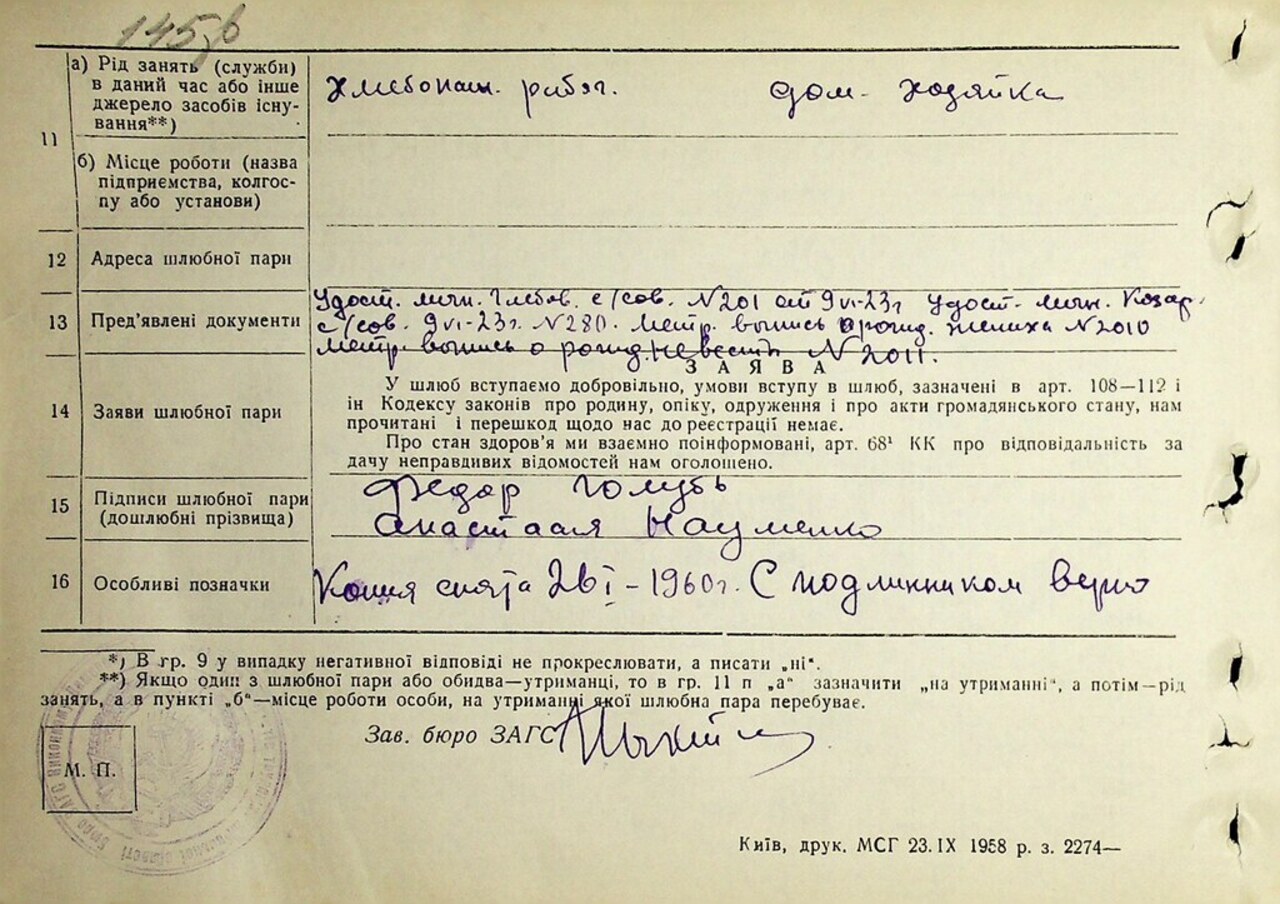 145
11
а) Рід занять (служби)
в даний час або інше
джерело засобів існу-
вання**)
Хлебопаш. работ. дом. хозяйка
б) Місце роботи (назва
підприємства, колгос-
пу або установи)
12 Адреса шлюбної пари
13 Пред'явлені документи
Удост. личн. Глебов. с/сов. N201 от 9 VI-23 г Удост. личн. Козар.
с/сов. 9 VI-23 г. N280. Метр. выпись о рожд. жениха N2010
Метр. выпись о рожд. невесты N2011.
ЗАЯВА
14 Заяви шлюбної пари
У шлюб вступаємо добровільно, умови вступу в шлюб, зазначені в арт. 108—112 і
ін Кодексу законів про родину, опіку, одруження і про акти громадянського стану, нам
прочитані і перешкод щодо нас до реєстрації немає.
Про стан здоров'я ми взаємно поінформовані, арт. 68¹ КК про відповідальність за
дачу неправдивих відомостей нам оголошено.
15 Підписи шлюбної пари
(дошлюбні прізвища)
Федор Голубь
Анастасия Науменко
16 Особливі позначки
Копия снята 26 I - 1960 г. С подлинником верно
*) В гр. 9 у випадку негативної відповіді не прокреслювати, а писати „ні".
**) Якщо один з шлюбної пари або обидва—утриманці, то в гр. 11 п „а" зазначити „на утриманні", а потім—рід
занять, а в пункті „б"—місце роботи особи, на утриманні якої шлюбна пара перебуває.
Зав. бюро ЗАГС
М. П.
Київ, друк. МСГ 23.IX 1958 р. з. 2274—